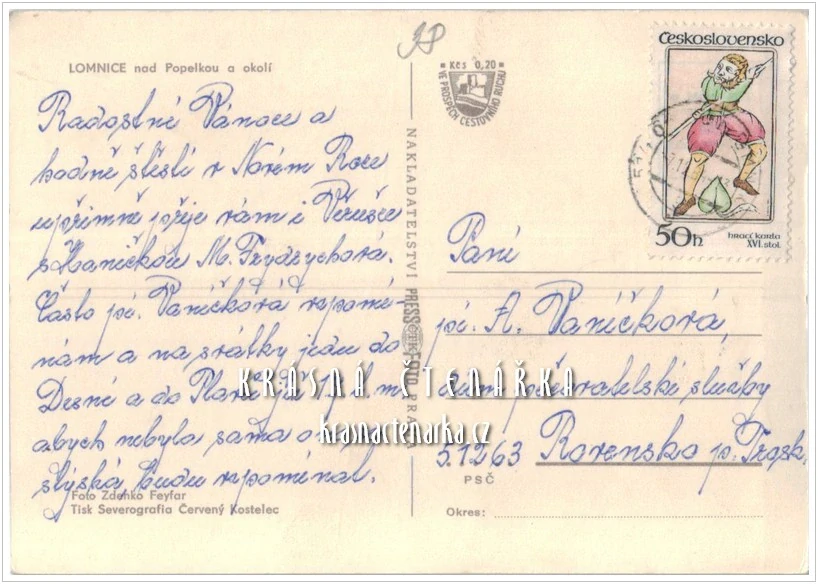 LOMNICE nad Popelkou a okolí
Radostné Vánoce a
hodně štěstí v Novém Roce
upřímně přeje vám i Věrušce
s Haničkou M. Frydrychová.
Často pí. Vaníčková vzpomí-
nám a na svátky jedu do
Desné a do
abych nebyla sama
budu vzpomínat.
Foto Zdenko Feyfar
Tisk Severografia Červený Kostelec
NAKLADATELSTVÍ PRESSFOTO PRAHA
Kčs 0,20
VE PROSPĚCH CESTOVNÍHO RUCHU
Československo
50h
hrací karta
XVI. stol.
Paní
pí. A. Vaníčková,
dům pečovatelské služby
51263 Rovensko p. Trosk.
PSČ
Okres:
KRÁSNÁ ČTENÁŘKA
krasnactenarka.cz